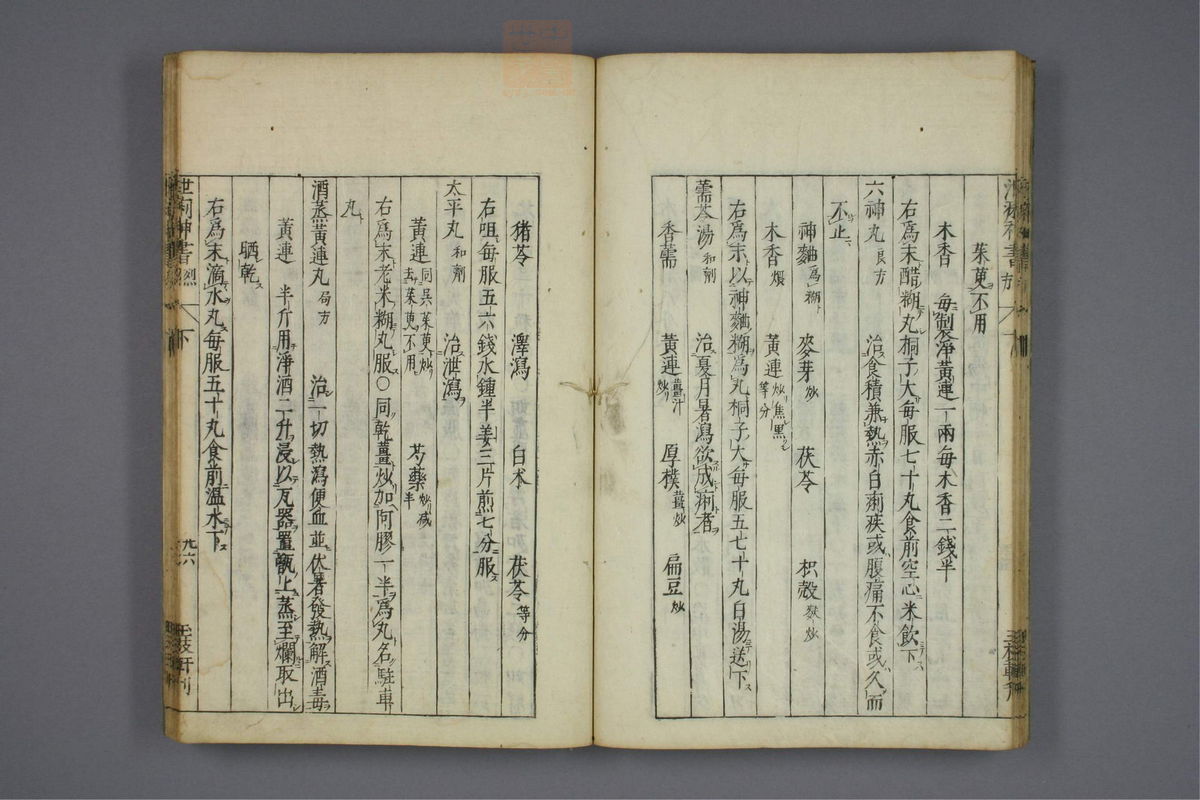 茱萸不用
木香 毎製淨黃連一兩毎木香二錢半
右爲末醋糊丸桐子大毎服七十丸食前空心米飲下
六神丸 良方 治食積兼熱赤白痢疾或腹痛不食或久而
不止
神麯 爲糊 麥芽 炒 茯苓 枳殻 麩炒
木香 煨 黃連 炒焦黒等分
右爲末以神麯糊爲丸桐子大毎服五七十丸白湯送下
薷苓湯 和劑 治夏月暑瀉欲成痢者
香薷 黃連 薑汁炒 厚樸 薑炒 扁豆 炒
猪苓 澤瀉 白朮 茯苓 等分
右咀毎服五六錢水鍾半姜三片煎七分服
太平丸 和劑 治泄瀉
黃連 同吳茱萸炒去茱萸不用 芍藥 炒減半
右爲末老米糊丸服○同乾薑炒加阿膠一半爲丸名駐車
丸
酒蒸黃連丸 局方 治一切熱瀉便血並伏暑發熱解酒毒
黃連 半斤用淨酒二升浸以瓦器置甑上蒸至爛取出
晒乾
右爲末滴水丸毎服五十丸食前溫水下